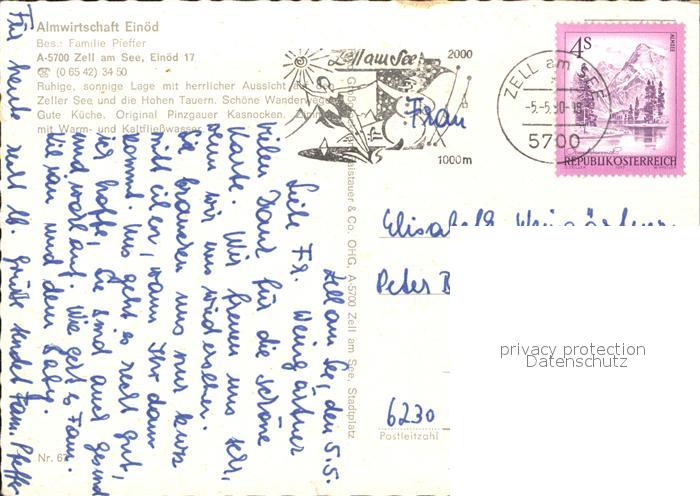 Almwirtschaft Einöd
Bes.: Familie Pfeffer
A-5700 Zell am See, Einöd 17
☎ (0 65 42) 34 50
Ruhige, sonnige Lage mit herrlicher Aussicht
Zeller See und die Hohen Tauern. Schöne Wanderwege
Gute Küche. Original Pinzgauer Kasnocken.
mit Warm- und Kaltfließwasser
Zell am See
2000
1000m
ZELL am SEE
-5.-5.80-18
5700
4S
ALMSEE
REPUBLIK ÖSTERREICH
Zell am See, den 5.5.
Liebe Fr. Weingärtner
Vielen Dank für die schöne
Karte. Wir freuen uns sehr,
wenn wir uns wiedersehen.
Sie brauchen uns nur kurz
mitteilen, wann Ihr dann
kommt. Uns geht es recht gut,
ich hoffe, Sie sind auch gesund
und wohlauf. Wie geht es Fam.
und dem Baby.
Für heute recht lb. Grüße sendet Fam. Pfeffer
& Co. OHG, A-5700 Zell am See, Stadtplatz
Frau
Elisabeth Weingärtner
Peter
6230
Postleitzahl
Nr. 67
privacy protection
Datenschutz